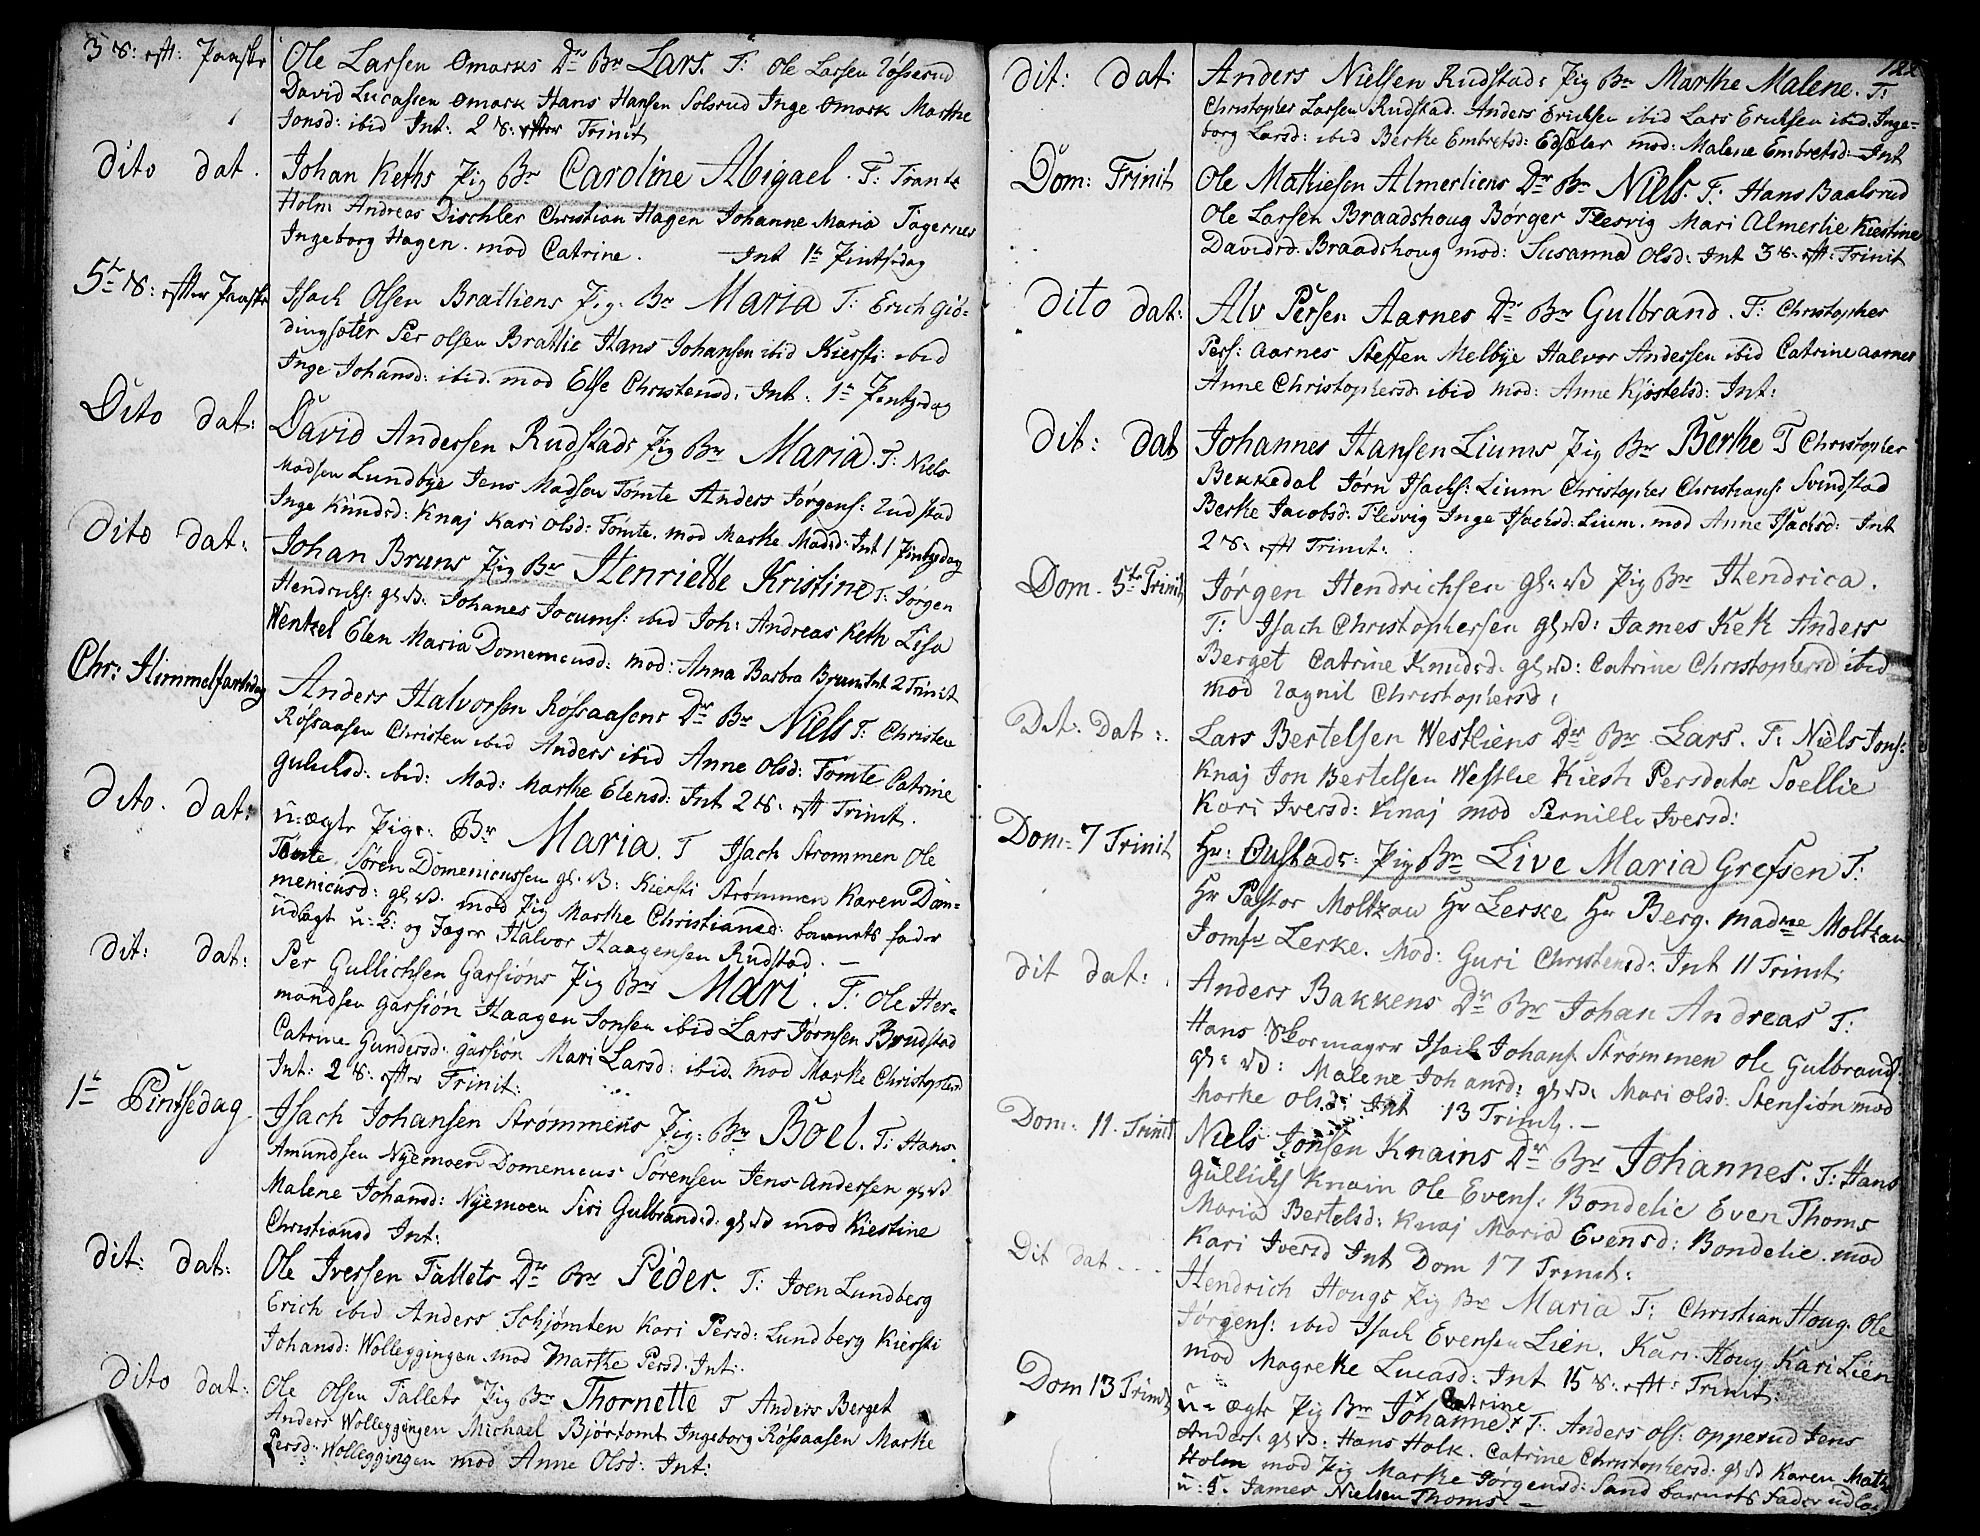 3 S: eft: Paaske
Ole Larsen Omarks Dr. Br Lars. T: Ole Larsen
David Lucassen Omark Hans Hansen Solsrud Inge Omark Marthe
Jonsd: ibid Int: 2 S: efter Trinit
Dito dat.
Johan Keths Pig Br Caroline Abigael. T: Trante
Holm Andreas Dischler Christian Hagen Johanne Maria Tagernes
Ingeborg Hagen. mod Catrine. Int 1te Pintsedag
5te S: efter Paaske
Isach Olsen Bratliens Pig. Br Maria T: Erich Gid-
dingsæter Per Olsen Bratlie Hans Johansen ibid Kiersti ibid
Inge Johansd: ibid. mod Else Christensd. Int. 1te Pintsedag
Dito dat:
David Andersen Rudstads Pig Br Maria T: Niels
Madsen Lundbye Jens Madsen Tömte Anders Jörgens: Rudstad
Inge Knudsd: Knaj Kari Olsd: Tömte. mod Marthe Madsd: Int 1 Pintsedag
Dito dat:
Johan Bruns Pig Br Henriette Kristine T: Jörgen
Hendrichs: gl: V. Johanes Jocums: ibid Joh: Andreas Keth Lisa
Wentzel Elen Maria Domenicusd: mod: Anna Barbra Brun Int 2 Trinit
Chr: Himmelfartsdag
Anders Halvorsen Rössaasens Dr Br Niels T: Christen
Rössaasen Christen ibid Anders ibid Anne Olsd: Tomte Catrine
Gulichsd: ibid: Mod: Marthe Elensd: Int 2 S: eft Trinit.
Dito. dat:
u-ægte Pige: Br Maria. T Isach Strommen Ole
Tomte Sören Domenicussen gl: V: Kiersti Strømmen Karen Dom-
menicusd: gl: V. mod Pig Marthe Christiansd: barnets fader
udlagt u: g: og Jæger Halvor Haagensen Rudstad. —
dit: dat:
Per Gullichsen Garsions Pig Br Mari. T: Ole Her-
mandsen Garsiön Haagen Jonsen ibid Lars Jörnsen Brudstad
Catrine Gundersd: Garsiön Mari Larsd: ibid. mod Marthe Christophersd
Int: 2 S: efter Trinit:
1te Pintsedag
Isach Johansen Strømmens Pig: Br Boel. T: Hans
Amundsen Nyemoen Domenicus Sørensen Jens Andersen gl: V
Malene Johansd: Nyemoen Siri Gulbrandsd. gl V mod Kiestine
Christiansd Int:
dit: dat:
Ole Iversen Fallets Dr Br Peder. T: Joen Lundberg
Erich ibid Anders Schjömten Kari Persd: Lundberg Kiersti
Johansd: Wolleggingen mod Marthe Persd. Int:
dito dat:
Ole Olsen Fallets Pig Br Thornette T Anders Berget
Anders Wolleggingen Michael Björtomt Ingeborg Rössaasen Marthe
Persd: Wolleggingen mod Anne Olsd: Int:
dit: dat
Anders Nielsen Rudstads Pig Br Marthe Malene. T:
Christopher Larsen Rudstad. Anders Erichsen ibid Lars Erichsen ibid. Inge-
borg Larsd: ibid Berthe Embretsd: mod: Malene Embretsd: Int
Dom: Trinit
Ole Mathiesen Almerliens Dr Br Niels. T: Hans Baalsrud
Ole Larsen Braadshoug Börger Flesvig Mari Almerlie Kiestine
Davidsd. Braadshoug mod: Susanna Olsd: Int 3 S: eft: Trinit
Dito dat:
Alv Persen Aarnes Dr Br Gulbrand. T: Christopher
Pers: Aarnes Steffen Melbye Halvor Andersen ibid Catrine Aarnes
Anne Christophersd ibid mod: Anne Kjöstelsd: Int:
Dit: dat
Johannes Hansen Liums Pig Br Berthe T Christopher
Bekkedal Jörn Isachs: Lium Christopher Christians: Svindstad
Berthe Jacobsd: Flesvig Inge Isachsd: Lium. mod Anne Isachsd: Int
2 S: eft Trinit:
Dom. 5te Trinit
Jørgen Hendrichsen gl: V Pig Br Hendrica.
T: Isach Christophersen gl V: James Keth Anders
Berget Catrine Knudsd: gl V: Catrine Christophersd ibid
mod Ragnil Christophersd:
Dit: Dat:
Lars Bertelsen Westliens Dr Br Lars. T: Niels Jons:
Knaj Jon Bertelsen Westlie Kiesti Persdater Soellie
Kari Iversd: Knaj mod Pernille Iversd:
Dom: 7 Trinit
Hr: Oustads: Pig Br Live Maria Grefsen T:
Hr Pastor Moltzau Hr Lerke Hr Berg. Madme Moltzau
Jomfr Lerke. Mod: Guri Christensd: Int 11 Trinit:
dit dat:
Anders Bakkens Dr Br Johan Andreas T:
Hans Skormager Isach Johans Strømmen Ole Gulbrands:
gl: V: Malene Johansd: gl: V: Mari Olsd: Stensiön mod
Marthe Olsd: Int 13 Trinit. —
Dom: 11. Trinit
Niels Jonsen Knains Dr Br Johannes. T: Hans
Gullichs Knain Ole Evens: Bondelie Even Thoms
Maria Bertelsd: Knaj Maria Evensd: Bondelie. mod
Kari Iversd Int Dom 17 Trinit:
Dit dat
Hendrich Hougs Pig Br Maria T: Christian Houg. Ole
Jörgens: ibid Isach Evensen Lien. Kari Houg Kari Lien
mod Magrethe Lucasd: Int 15 S: eft: Trinit:
Dom 13 Trinit
Catrine
u-ægte Pig Br Johanne. T: Anders Ols: Opperud Jens
Anders: gl V: Hans Holk. Catrine Christophersd: gl V Karen Math
Holm mod Pig Marthe Jørgensd: Sand barnets Fader udlagt
u: g. James Nielsen Thoms —